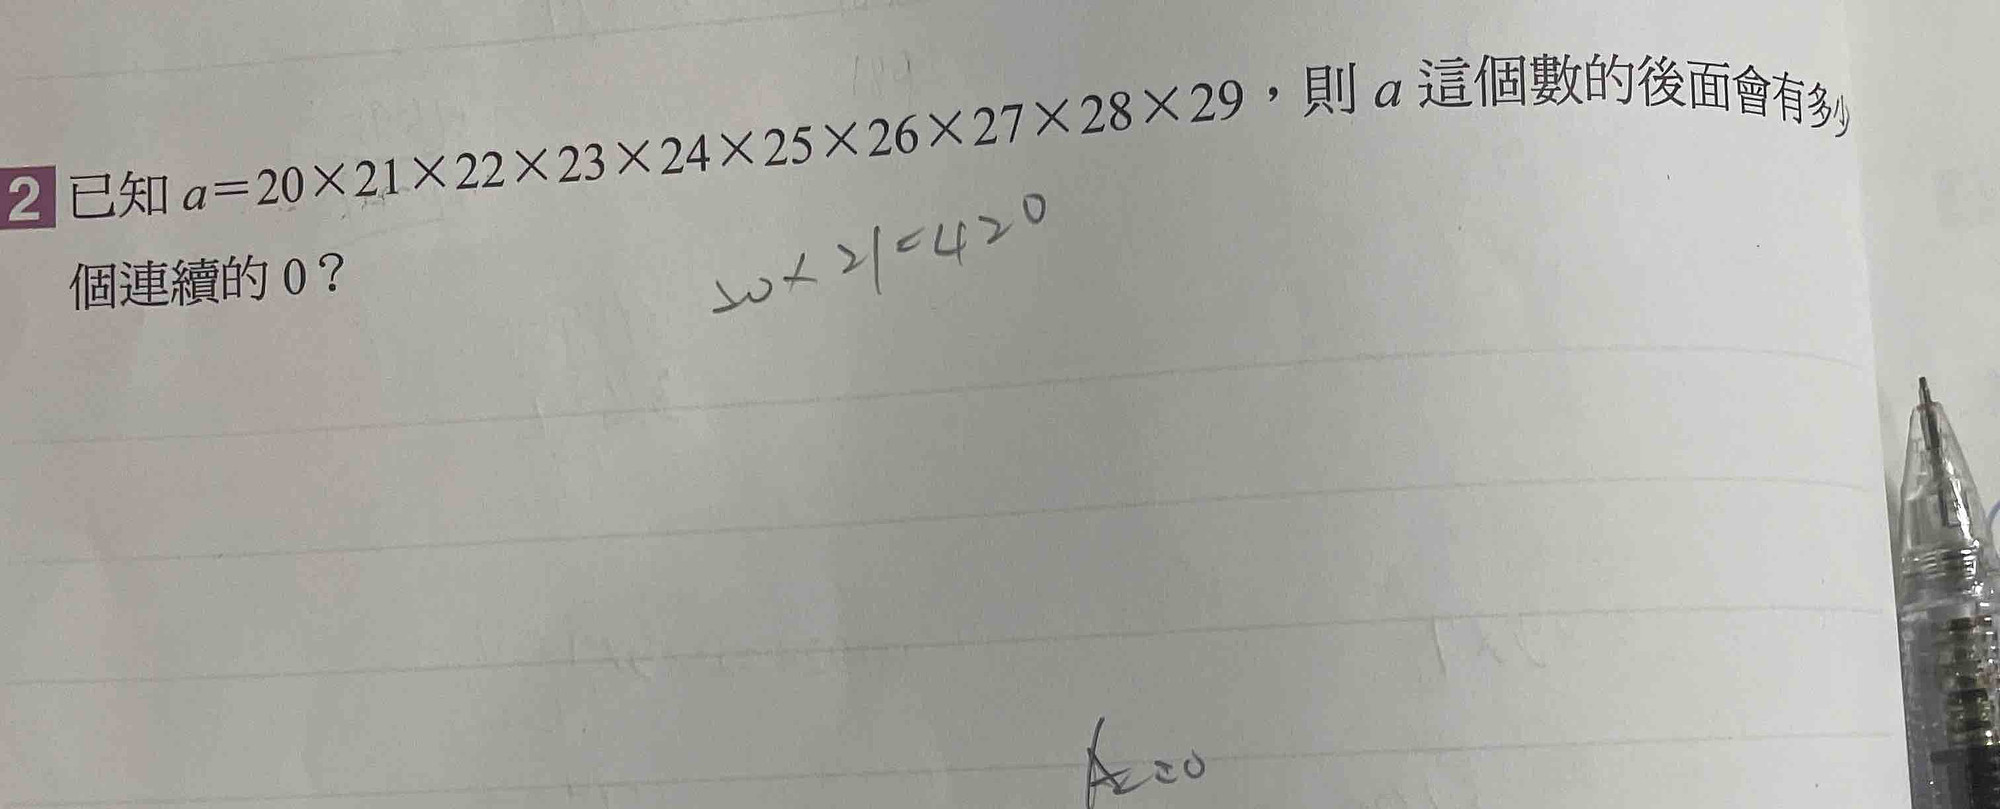 2 已知 a=20×21×22×23×24×25×26×27×28×29，則 a 這個數的後面會有多少
個連續的 0？
20×21=420